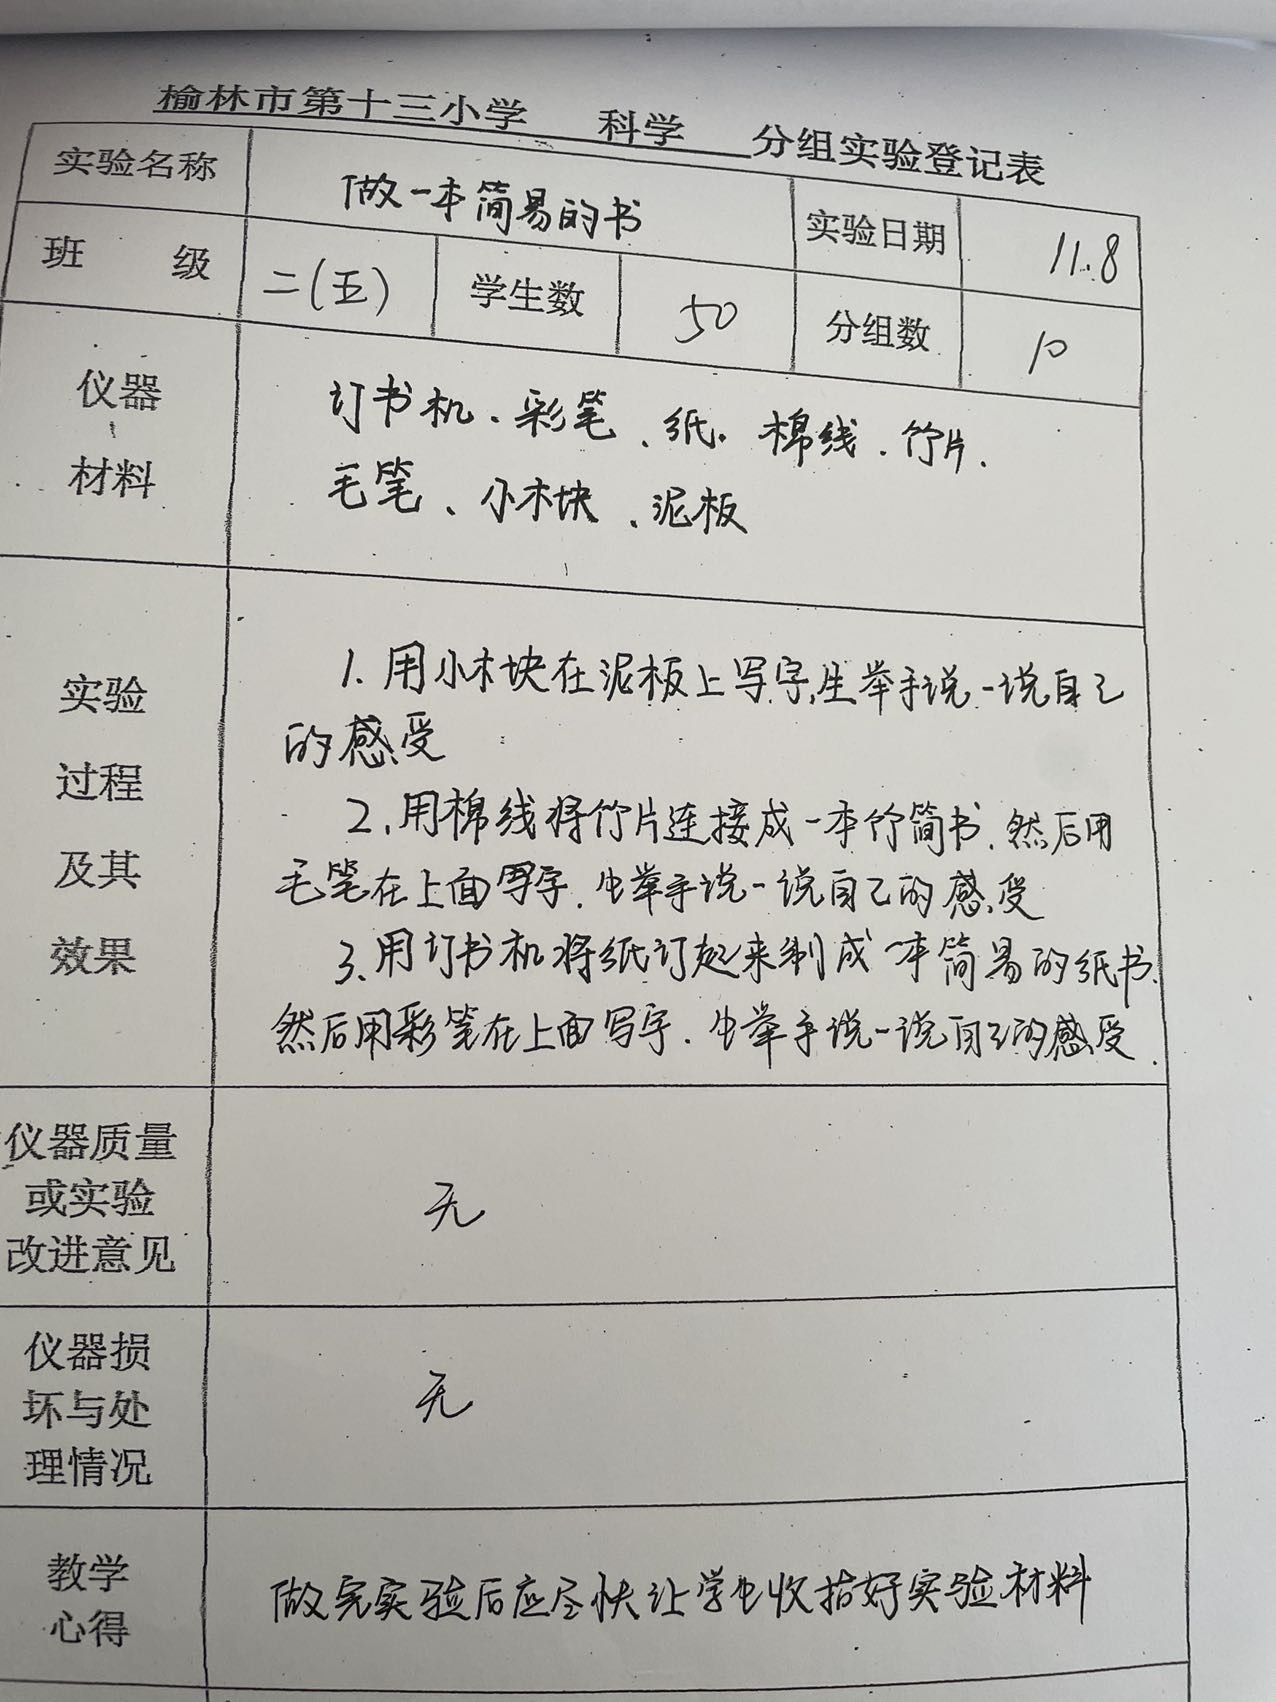 榆林市第十三小学 科学 分组实验登记表
实验名称 做一本简易的书 实验日期 11.8
班 级 二(五) 学生数 50 分组数 10
仪器
材料
订书机、彩笔、纸、棉线、竹片、
毛笔、小木块、泥板
实验
过程
及其
效果
1.用小木块在泥板上写字,生举手说一说自己
的感受
2.用棉线将竹片连接成一本竹简书.然后用
毛笔在上面写字.生举手说一说自己的感受
3.用订书机将纸订起来制成一本简易的纸书.
然后用彩笔在上面写字.生举手说一说自己的感受.
仪器质量
或实验
改进意见
无
仪器损
坏与处
理情况
无
教学
心得
做完实验后应尽快让学生收拾好实验材料